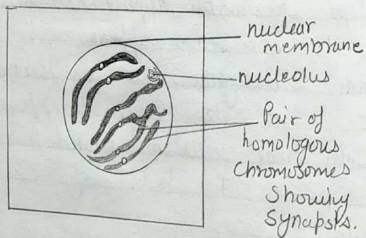 nuclear
membrane
nucleolus
Pair of
homologous
Chromosomes
Showing
Synapsis.